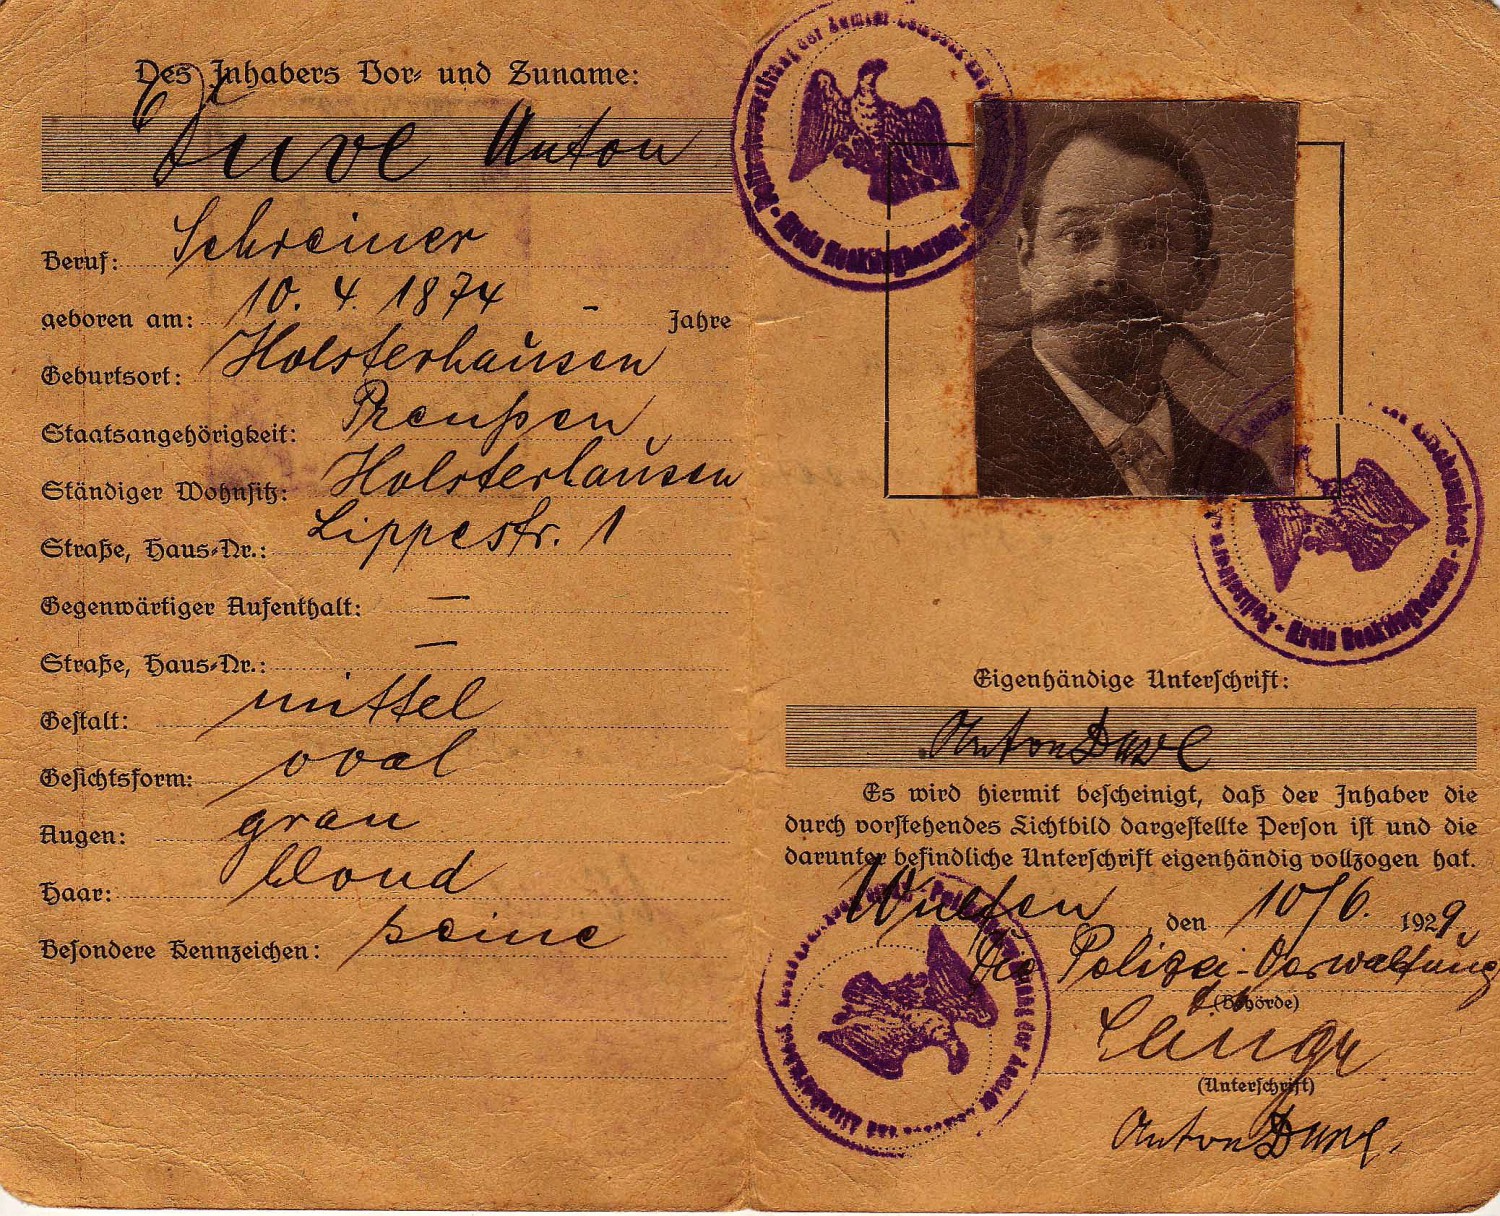 Des Inhabers Vor- und Zuname:
Duve Anton
Beruf: Schreiner
geboren am: 10. 4. 1874 – Jahre
Geburtsort: Holsterhausen
Staatsangehörigkeit: Preußen
Ständiger Wohnsitz: Holsterhausen
Straße, Haus-Nr.: Lippestr. 1
Gegenwärtiger Aufenthalt: –
Straße, Haus-Nr.: –
Gestalt: mittel
Gesichtsform: oval
Augen: grau
Haar: blond
Besondere Kennzeichen: keine
der Aemter Lembeck und
Kreis Recklinghausen
Kreis Recklinghausen
Eigenhändige Unterschrift:
Anton Duve
Es wird hiermit bescheinigt, daß der Inhaber die
durch vorstehendes Lichtbild dargestellte Person ist und die
darunter befindliche Unterschrift eigenhändig vollzogen hat.
Wulfen den 10/6. 1929
Die Polizei-Verwaltung
(Behörde)
(Unterschrift)
Anton Duve.